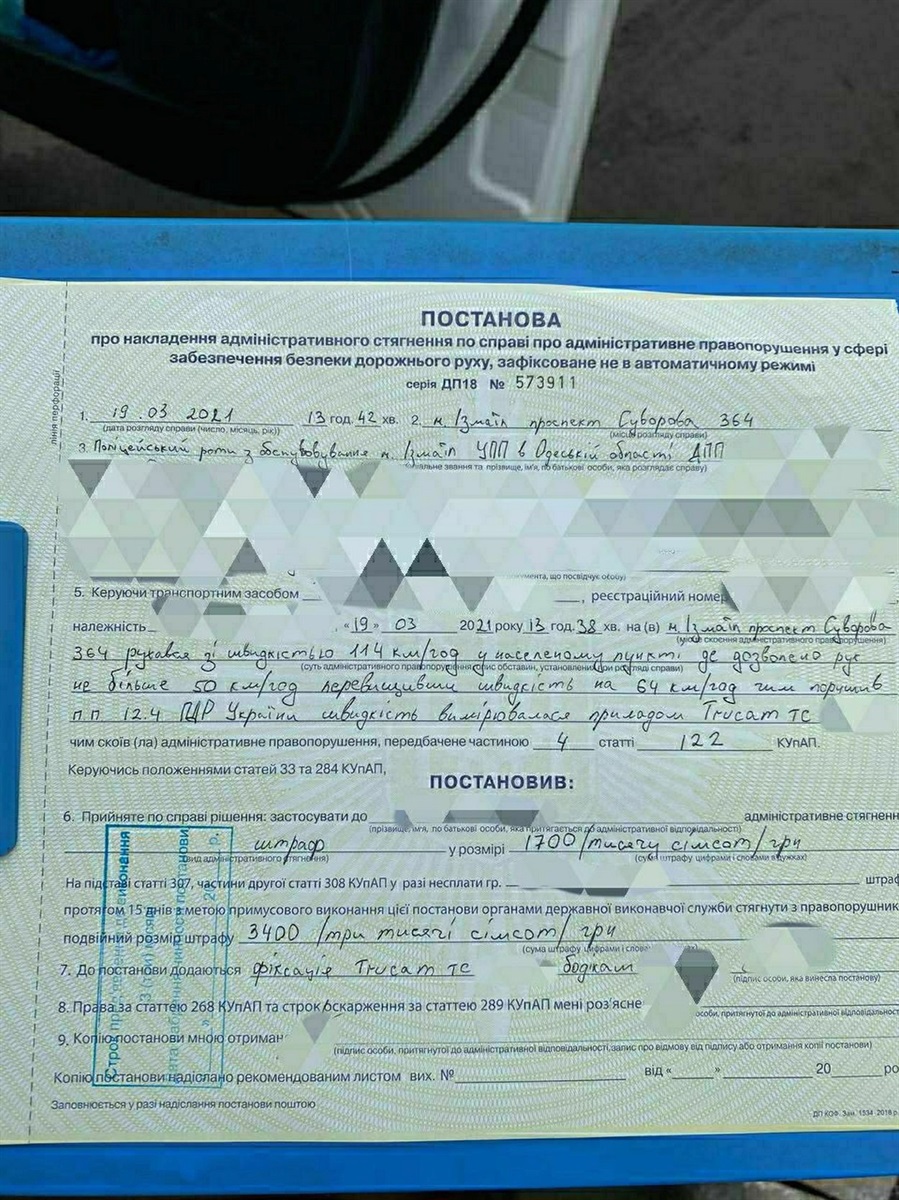 ПОСТАНОВА
про накладення адміністративного стягнення по справі про адміністративне правопорушення у сфері
забезпечення безпеки дорожнього руху, зафіксоване не в автоматичному режимі
серія ДП18 № 573911
лінія перфорації
1. 19.03 2021 13 год. 42 хв. 2. м. Ізмаїл проспект Суворова 364
(дата розгляду справи (число, місяць, рік)) (місце розгляду справи)
3. Поліцейський роти з обслуговування м. Ізмаїл УПП в Одеській області ДПП
звання та прізвище, ім'я, по батькові особи, яка розглядає справу)
що посвідчує особу)
5. Керуючи транспортним засобом , реєстраційний номер
належність «19» 03 2021 року 13 год. 38 хв. на (в) м Ізмаїл проспект Суворова
(місце скоєння адміністративного правопорушення)
364 рухався зі швидкістю 114 км/год у населеному пункті де дозволено рух
(суть адміністративного правопорушення, опис обставин, установлених при розгляді справи)
не більше 50 км/год перевищивши швидкість на 64 км/год чим порушив
п п 12.4 ПДР України швидкість вимірювалася приладом Trucam TC
чим скоїв (ла) адміністративне правопорушення, передбачене частиною 4 статті 122 КУпАП.
Керуючись положеннями статей 33 та 284 КУпАП,
ПОСТАНОВИВ:
6. Прийняте по справі рішення: застосувати до адміністративне стягнен
(прізвище, ім'я, по батькові особи, яка притягається до адміністративної відповідальності)
штраф у розмірі 1700 /тисячу сімсот/ грн
(вид адміністративного стягнення) (сума штрафу цифрами і словами в дужках)
На підставі статті 307, частини другої статті 308 КУпАП у разі несплати гр. штраф
протягом 15 днів з метою примусового виконання цієї постанови органами державної виконавчої служби стягнути з правопорушник
подвійний розмір штрафу 3400 /три тисячі сімсот/ грн
(сума штрафу цифрами і слова
7. До постанови додаються фіксація Trucam TC бодікам
(підпис особи, яка винесла постанову)
8. Права за статтею 268 КУпАП та строк оскарження за статтею 289 КУпАП мені роз'ясне
особи, притягнутої до адміністративної відповідальност
9. Копію постанови мною отриман
(підпис особи, притягнутої до адміністративної відповідальності, запис про відмову від підпису або отримання копії постанови)
Копію постанови надіслано рекомендованим листом вих. № від « » 20 ро
Заповнюється у разі надіслання постанови поштою
ДП КОФ. Зам. 1534 2018 р.
Строк до виконання
3 (три)
набрання чинності постанови
« » 2 р.